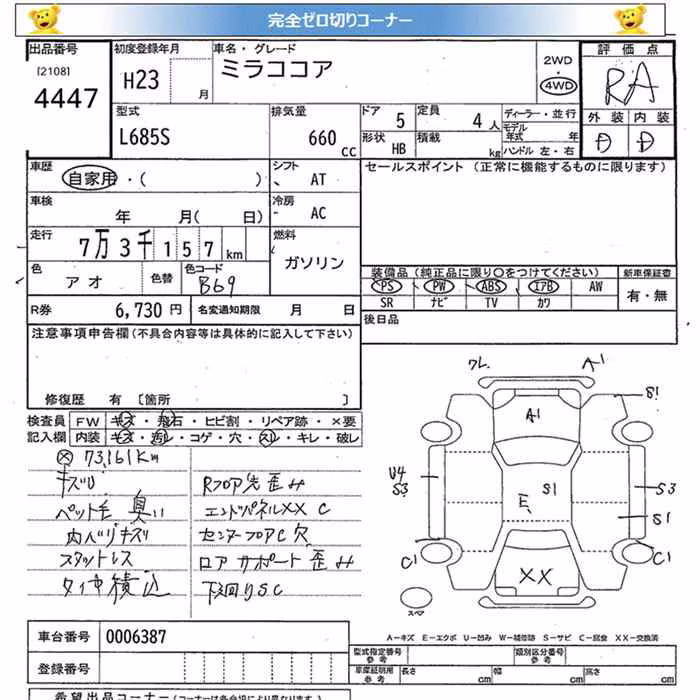 完全ゼロ切りコーナー
出品番号 初度登録年月 車名・グレード 評価点
[2108]
4447 H23 月 ミラココア 2WD 4WD RA
型式 排気量 ドア 定員 ディーラー・並行 外装 内装
L685S 660 cc 5 4人 モデル年式 年 D D
形状 HB 積載 kg ハンドル 左・右
車歴 シフト セールスポイント (正常に機能するものに限ります)
自家用・( ) AT
車検 冷房
年 月( 日) AC
走行 燃料
7万3千157km ガソリン
色 色替 色コード 装備品 (純正品に限り○をつけてください) 新車保証書
アオ B69 PS PW ABS エアB AW 有・無
SR ナビ TV カワ
R券 6,730円 名変通知期限 月 日 後日品
注意事項申告欄(不具合内容等は具体的に記入して下さい)
修復歴 有 [箇所 ]
検査員 FW キズ・飛石・ヒビ割・リペア跡・×要
記入欄 内装 キズ・汚れ・コゲ・穴・スレ・キレ・破レ
73,161km
キズ凹 Rフロア先歪み
ペット毛 臭い エンドパネルXX C
内ハリキズ凹 センターフロアC穴
スタットレス ロアサポート歪み
タイヤ積込 下廻りSC
ワレ A1
A1 S1
U4
S3 E S1 S3
S1
C1 XX C1
スペア
A-キズ E-エクボ U-凹み W-補修跡 S-サビ C-腐食 XX-交換済
車台番号 0006387
型式指定番号 参考 類別区分番号 参考
登録番号 車庫証明用 参考 長さ 幅 高さ
希望出品コーナー